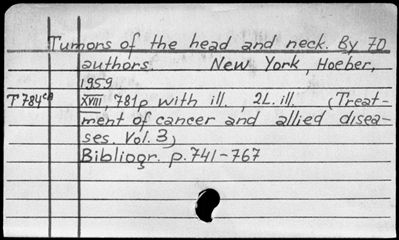 Tumors of the head and neck. By 70
authors. New York, Hoeber,
1959
T 784 cA XVIII, 781p with ill., 2L. ill. (Treat-
ment of cancer and allied disea-
ses. Vol. 3)
Bibliogr. p. 741-767